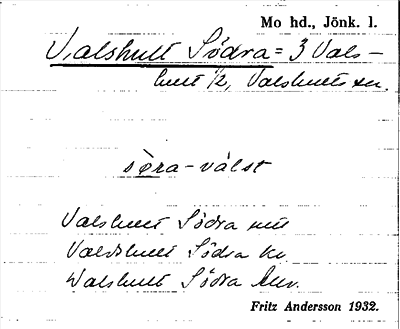 Mo hd., Jönk. l.
Valshult Södra = 3 Vals-
hult ½, Valshults sn.
söra-vålst
Valshult Södra
Valdshult Södra
Walshult Södra
Fritz Andersson 1932.